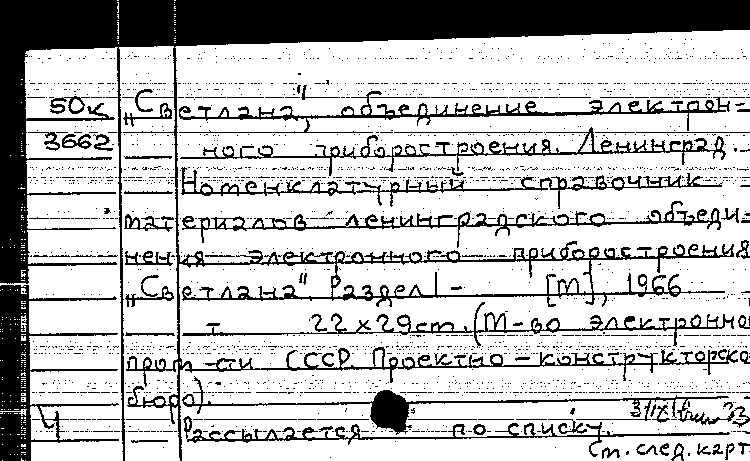 50к „Светлана", объединение электрон=
3662 ного приборостроения. Ленинград.
Номенклатурный справочник
материалов ленинградского объеди=
нения электронного приборостроения
„Светлана". Раздел 1- [М], 1966
т. 22×29cm. (М-во электронно
пром-сти СССР. Проектно-конструкторско
бюро).
Ч Рассылается по списку.
См. след. карт